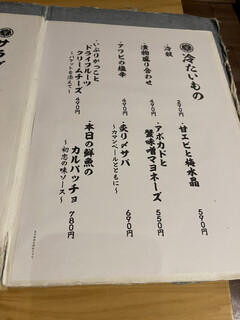 冷たいもの
・冷奴
390円
・漬物盛り合わせ
490円
・アワビの塩辛
490円
・いぶりがっこと
ドライフルーツ
クリームチーズ
～バケットを添えて～
・甘エビと梅水晶
590円
・アボカドと
蟹味噌マヨネーズ
550円
・炙り〆サバ
～カマンベールとともに～
690円
・本日の鮮魚の
カルパッチョ
～初恋の味ソース～
780円
サラダ